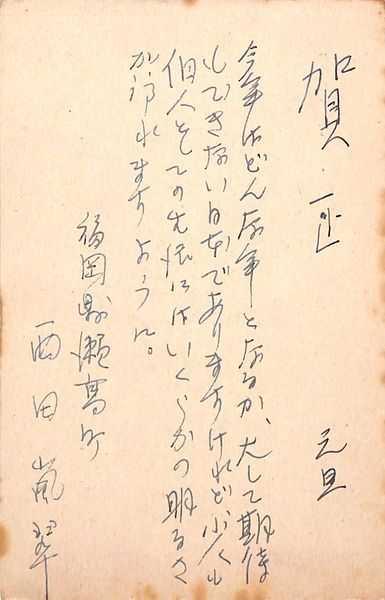 賀正
元旦
今年はどんな年となるか、大して期待
もできない日本でありますけれど、少くも
個人としての生活にはいくらかの明るさ
が訪れますように。
福岡県瀬高町
西田嵐翠